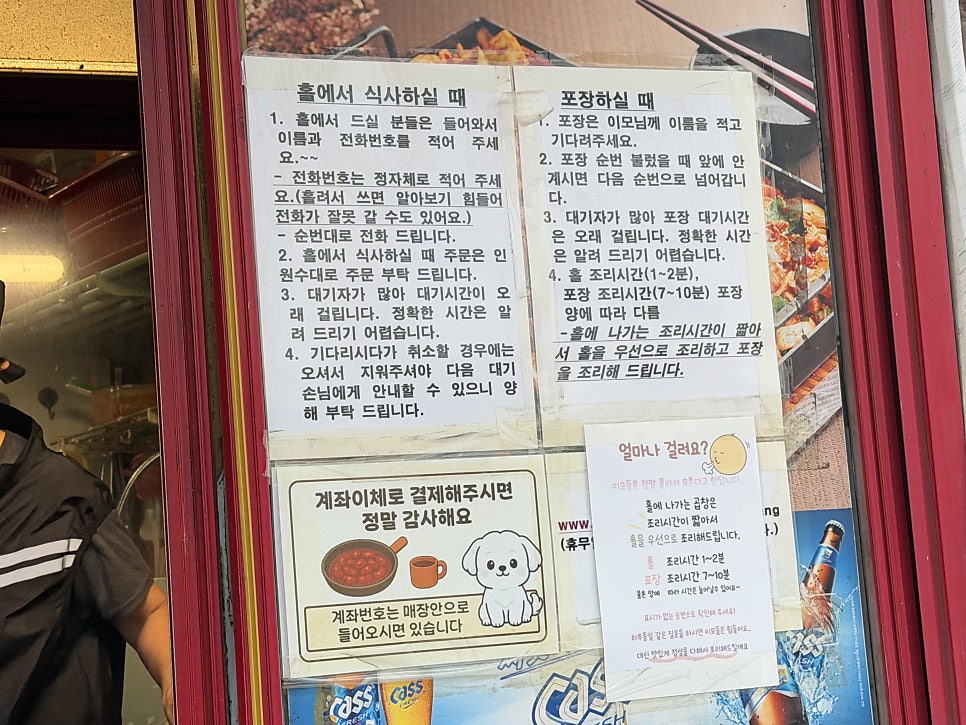 홀에서 식사하실 때
1. 홀에서 드실 분들은 들어와서
이름과 전화번호를 적어 주세
요.~~
- 전화번호는 정자체로 적어 주세
요.(흘려서 쓰면 알아보기 힘들어
전화가 잘못 갈 수도 있어요.)
- 순번대로 전화 드립니다.
2. 홀에서 식사하실 때 주문은 인
원수대로 주문 부탁 드립니다.
3. 대기자가 많아 대기시간이 오
래 걸립니다. 정확한 시간은 알
려 드리기 어렵습니다.
4. 기다리시다가 취소할 경우에는
오셔서 지워주셔야 다음 대기
손님에게 안내할 수 있으니 양
해 부탁 드립니다.
포장하실 때
1. 포장은 이모님께 이름을 적고
기다려주세요.
2. 포장 순번 불렀을 때 앞에 안
계시면 다음 순번으로 넘어갑니
다.
3. 대기자가 많아 포장 대기시간
은 오래 걸립니다. 정확한 시간
은 알려 드리기 어렵습니다.
4. 홀 조리시간(1~2분),
포장 조리시간(7~10분) 포장
양에 따라 다름
-홀에 나가는 조리시간이 짧아
서 홀을 우선으로 조리하고 포장
을 조리해 드립니다.
계좌이체로 결제해주시면
정말 감사해요
계좌번호는 매장안으로
들어오시면 있습니다
얼마나 걸려요?
이모들은 정말 몰라서 모른다고 한답니다.
홀에 나가는 곱창은
조리시간이 짧아서
홀을 우선으로 조리해드립니다.
홀 조리시간 1~2분
포장 조리시간 7~10분
물론 양에 따라 시간은 늘어날수 있어요~
표시가 없는 순번으로 확인해 주세요!
하루종일 같은 질문을 하시면 이모들은 힘들어요..
대신 맛있게 정성을 다해서 조리해드릴게요
www.
ng
(휴무
.)
Cass
FRESH
Cass
FRESH
Cass
FRESH
Cass